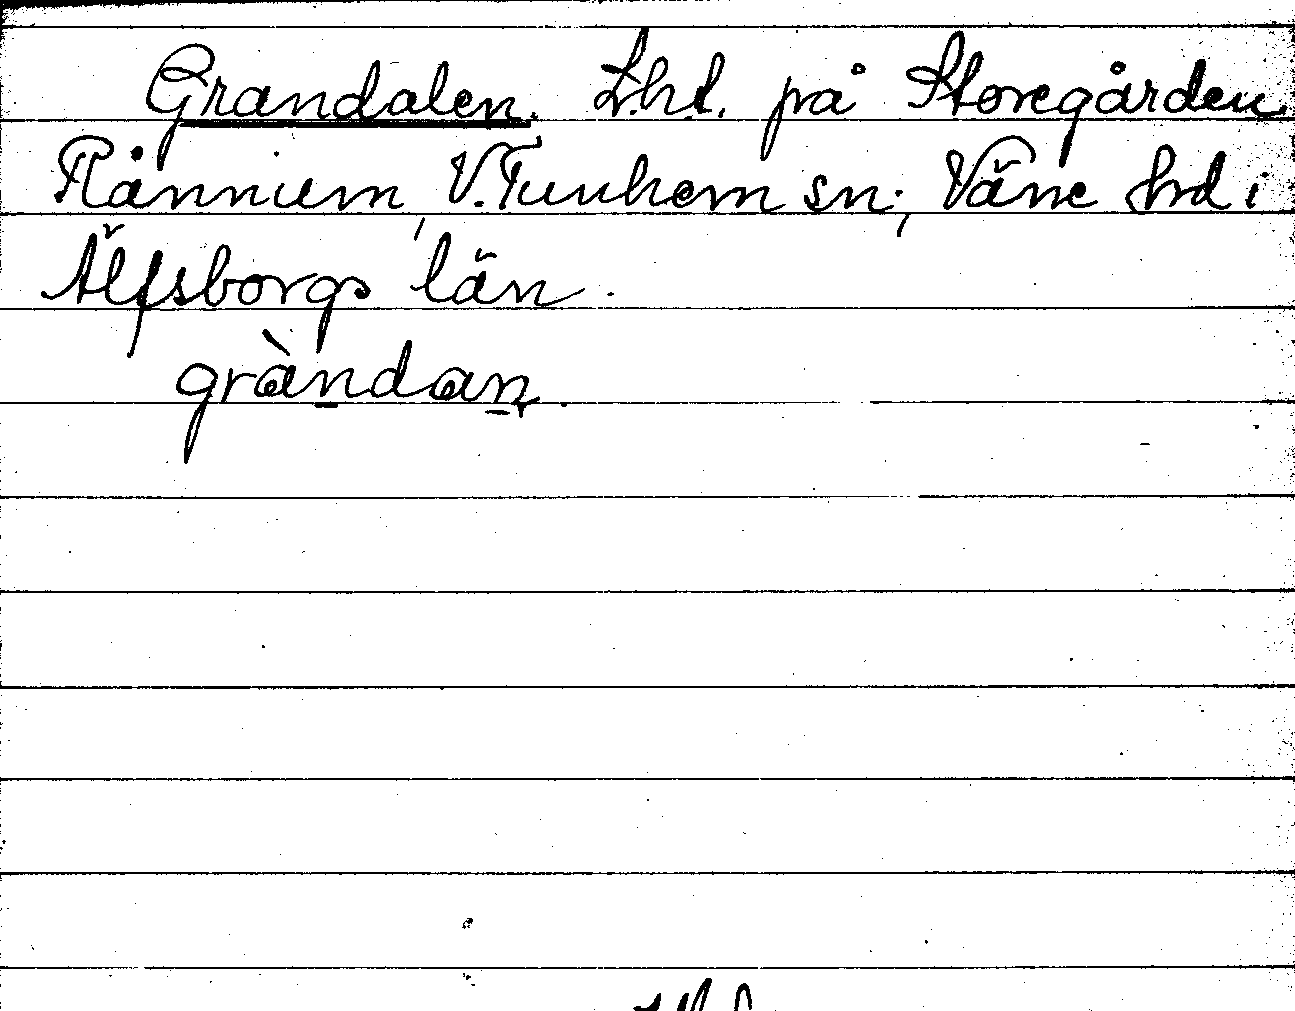 Grandalen. L.ht. på Storegården
Rånnum, V.Tunhem sn., Väne hd i
Älfsborgs län.
gràndan.